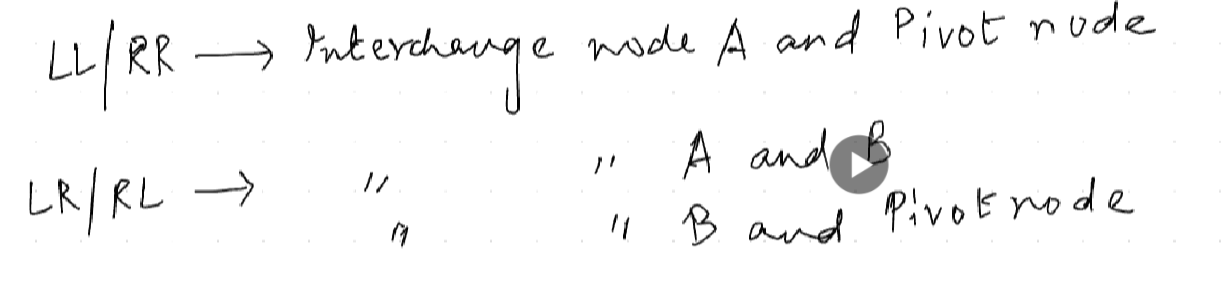 LL/RR → Interchange node A and Pivot node
LR/RL → " " A and B
" " B and Pivot node